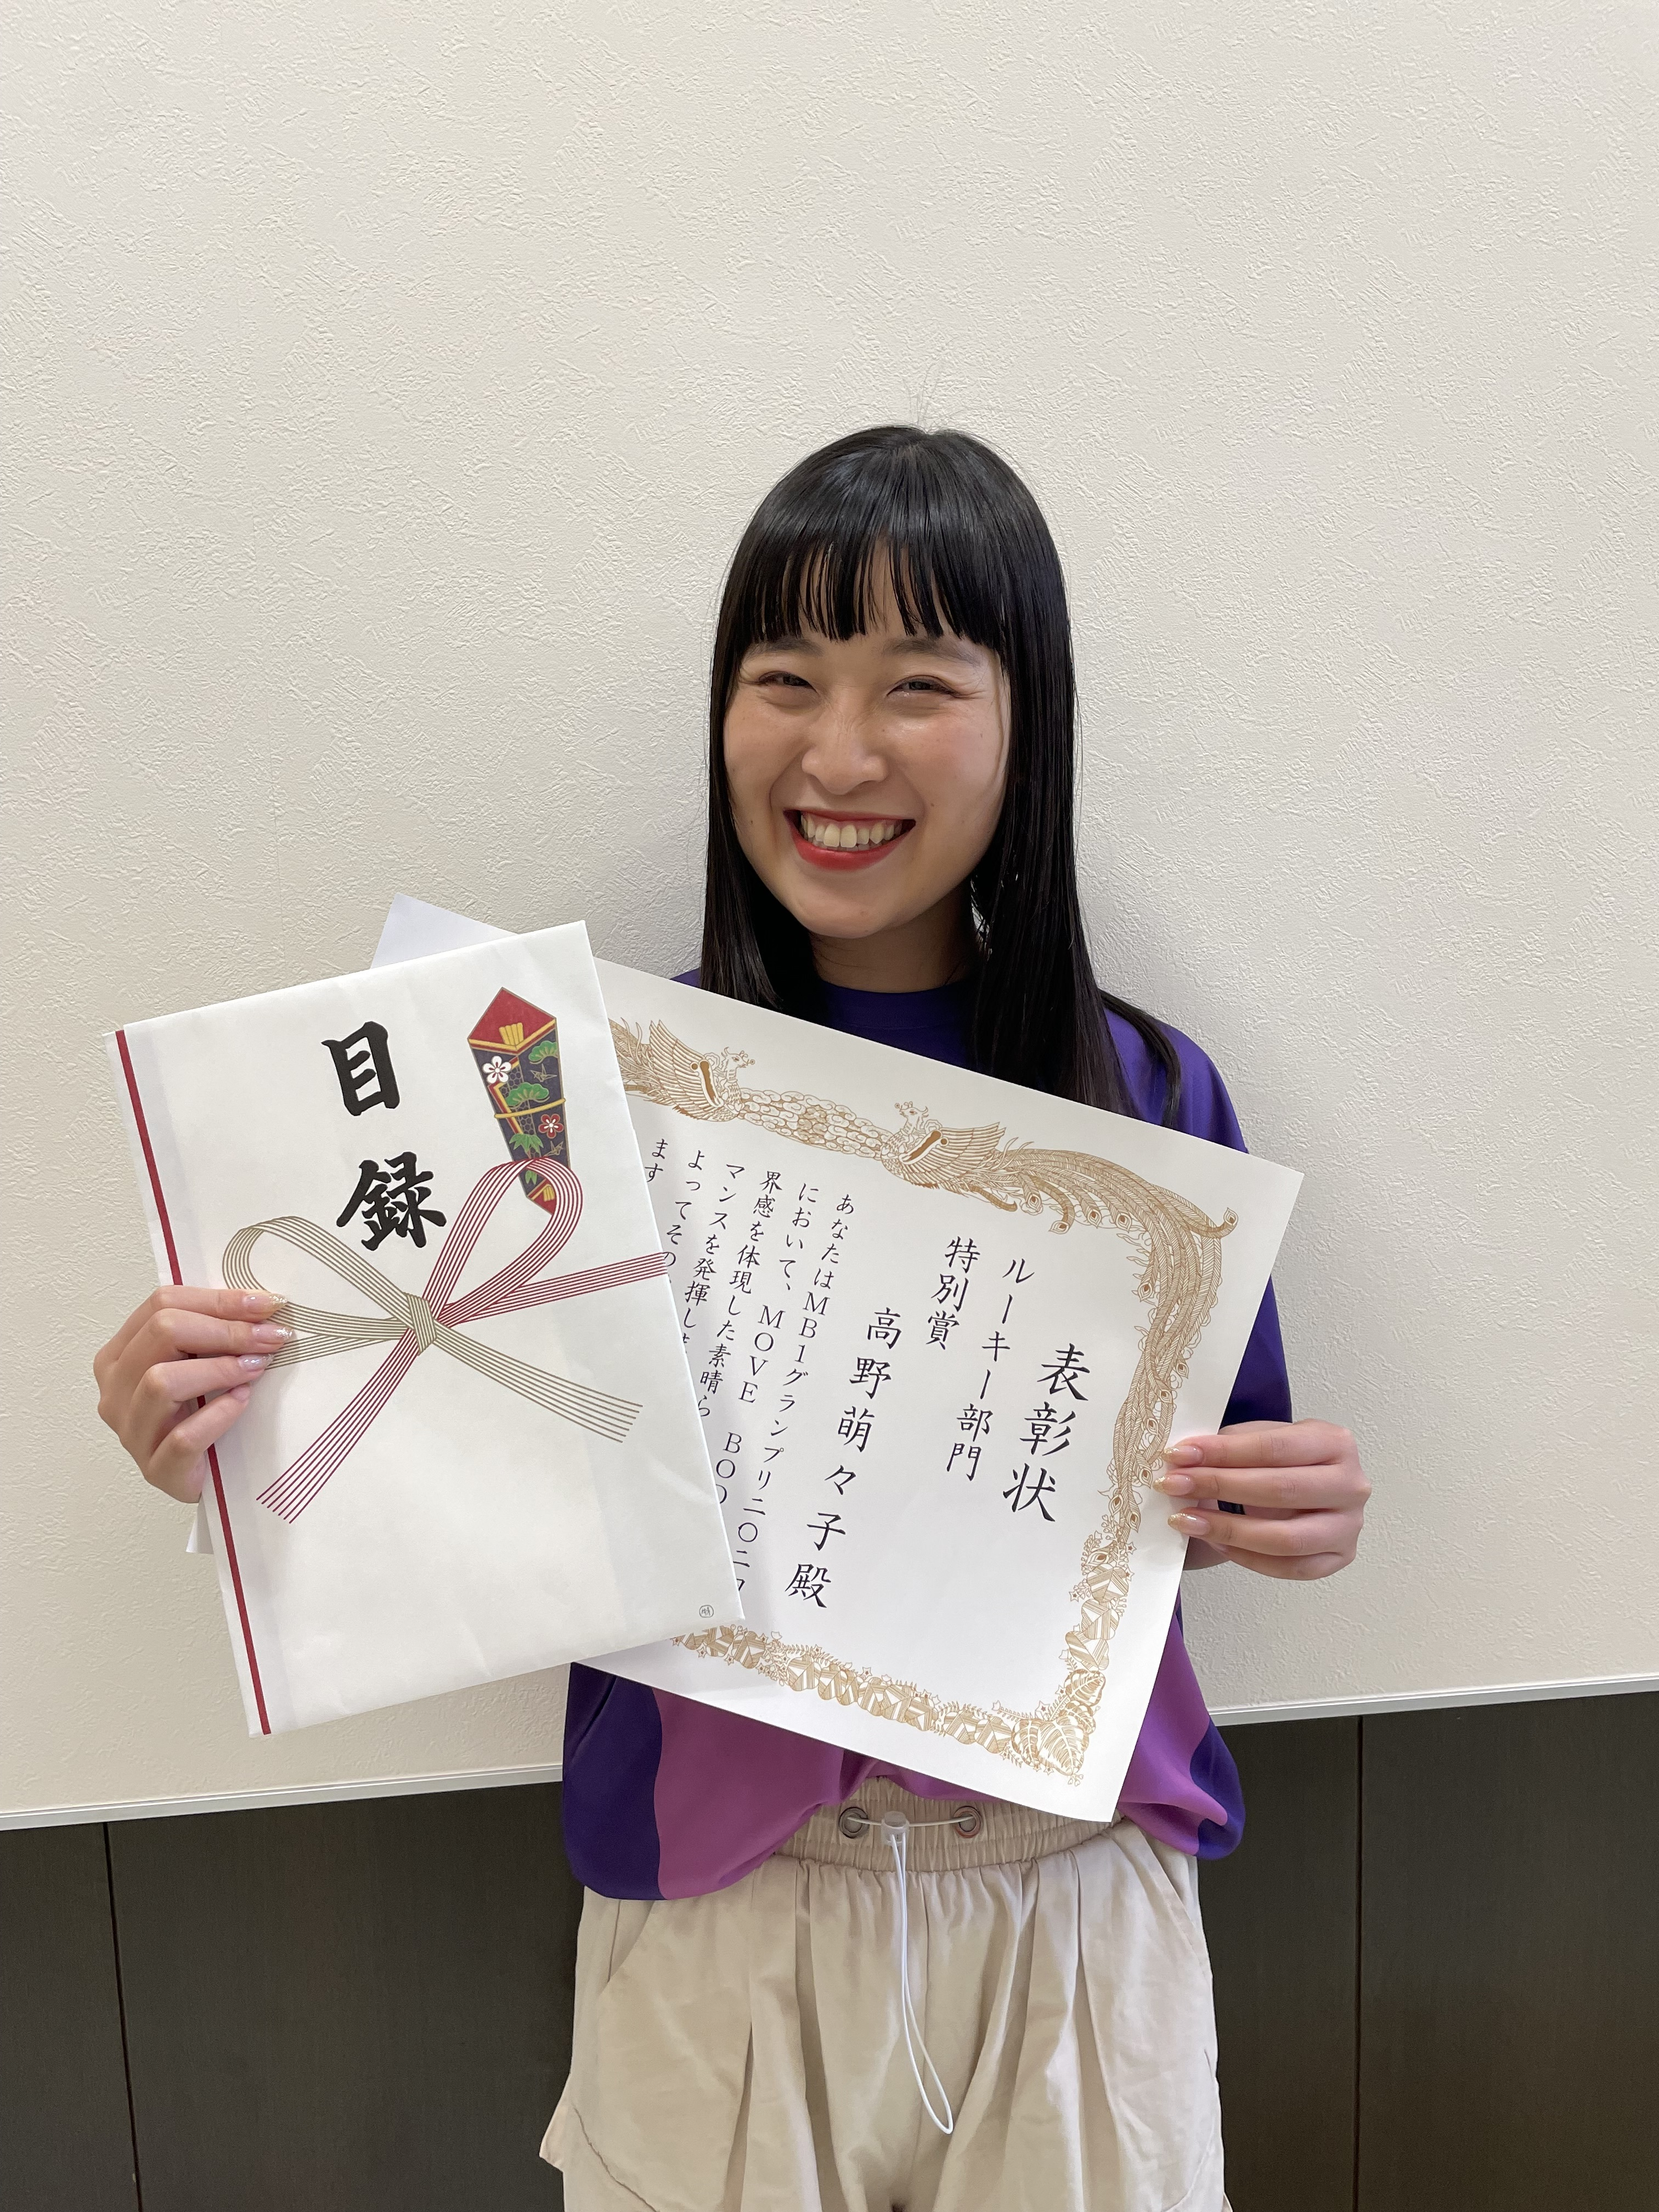 目録
表彰状
ルーキー部門
特別賞
高野萌々子殿
あなたはMB1グランプリ二〇二
において、MOVE BOO
界感を体現した素晴ら
マンスを発揮しま
よってその
ます